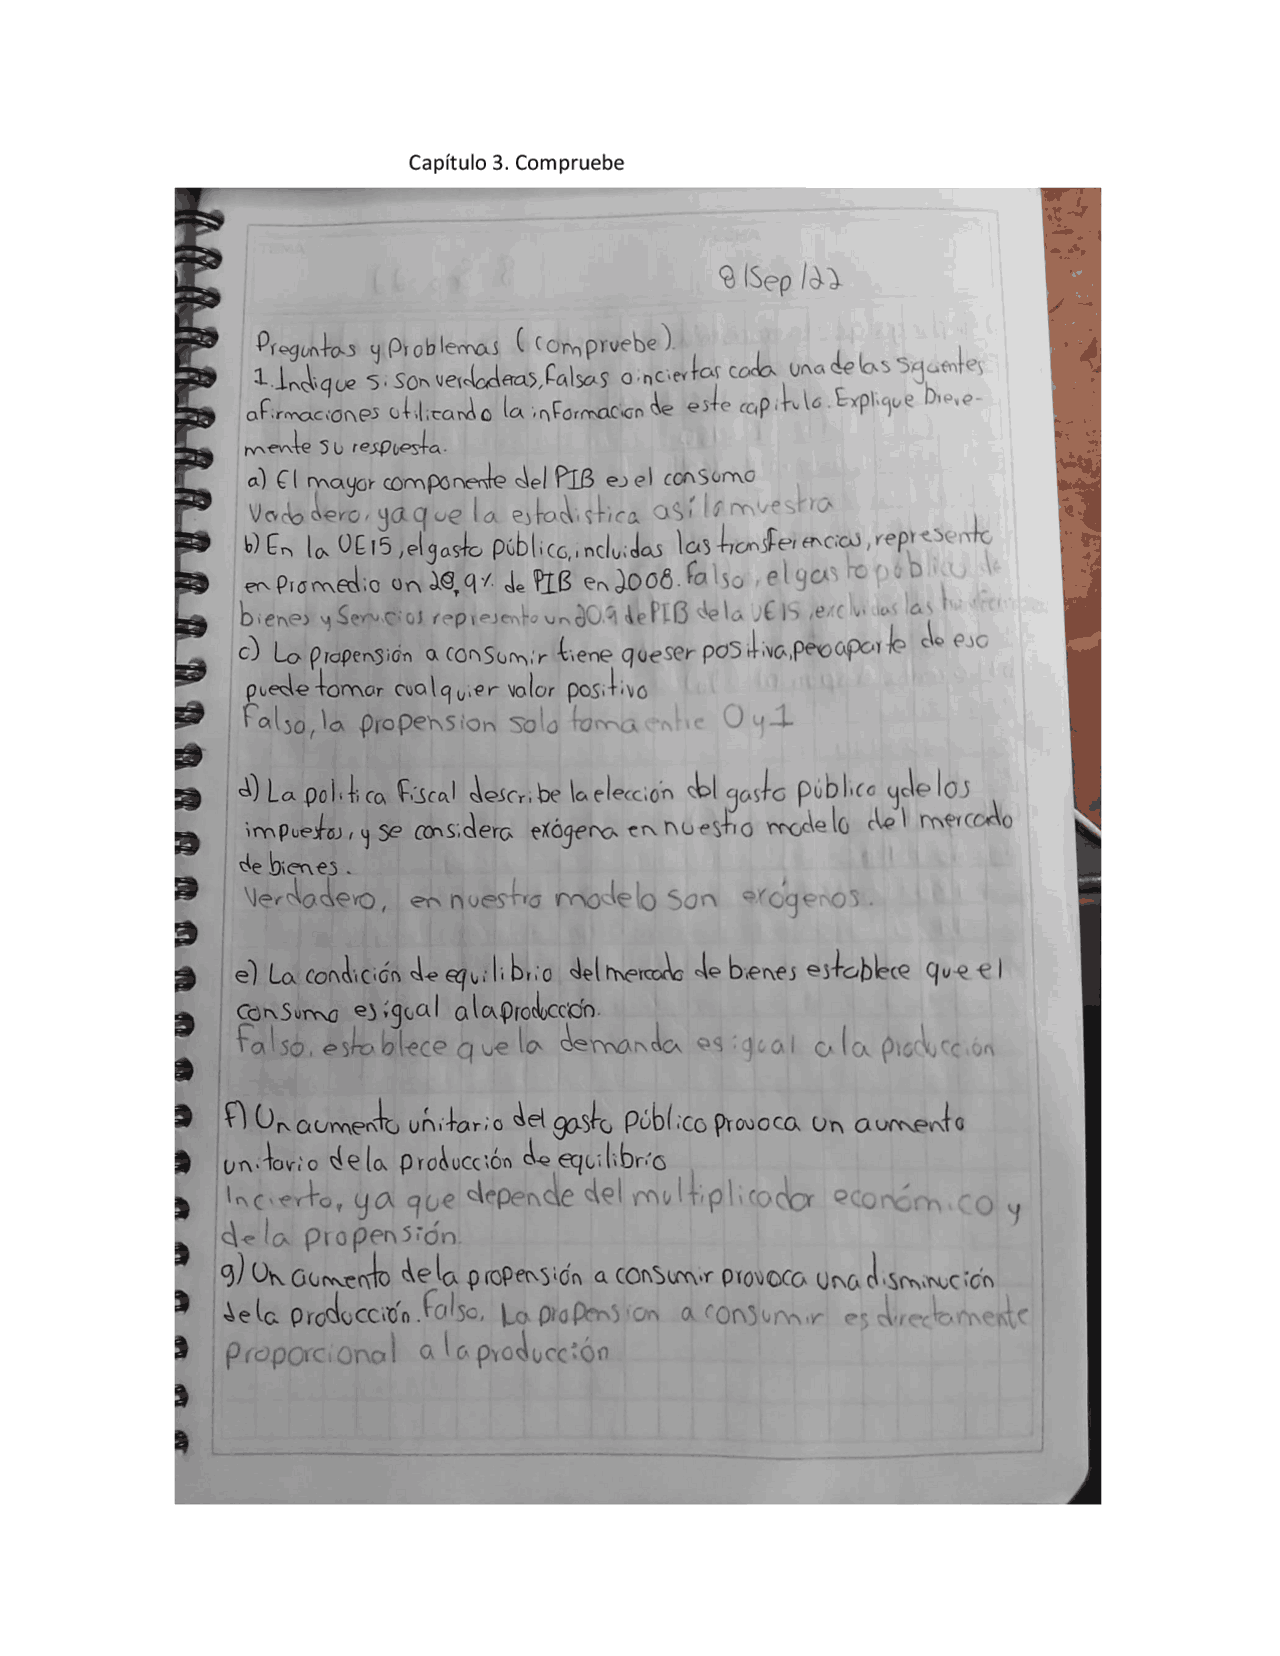 Capítulo 3. Compruebe
8/Sep/22
Preguntas y Problemas (compruebe).
1. Indique si son verdaderas, falsas o inciertas cada una de las sguentes
afirmaciones utilizando la informacion de este capitulo. Explique breve-
mente su respuesta.
a) El mayor componente del PIB es el consumo
Verdadero, ya que la estadistica así lo muestra
b) En la UE15, el gasto público, incluidas las transferencias, represento
en promedio un 20,9% de PIB en 2008. Falso, el gasto público de
bienes y Servicios represento un 20.9 de PIB de la UE15, excluidas las
c) La propensión a consumir tiene que ser positiva, pero aparte de eso
puede tomar cualquier valor positivo
Falso, la propension solo toma entre 0 y 1
d) La politica fiscal describe la elección del gasto público y de los
impuestos, y se considera exógena en nuestro modelo del mercado
de bienes.
Verdadero, en nuestro modelo son exógenos.
e) La condición de equilibrio del mercado de bienes establece que el
consumo es igual a la producción.
Falso, establece que la demanda es igual a la producción
f) Un aumento unitario del gasto público provoca un aumento
unitario de la producción de equilibrio
Incierto, ya que depende del multiplicador económico y
de la propensión.
g) Un aumento de la propensión a consumir provoca una disminución
de la producción. Falso, La propension a consumir es directamente
proporcional a la producción